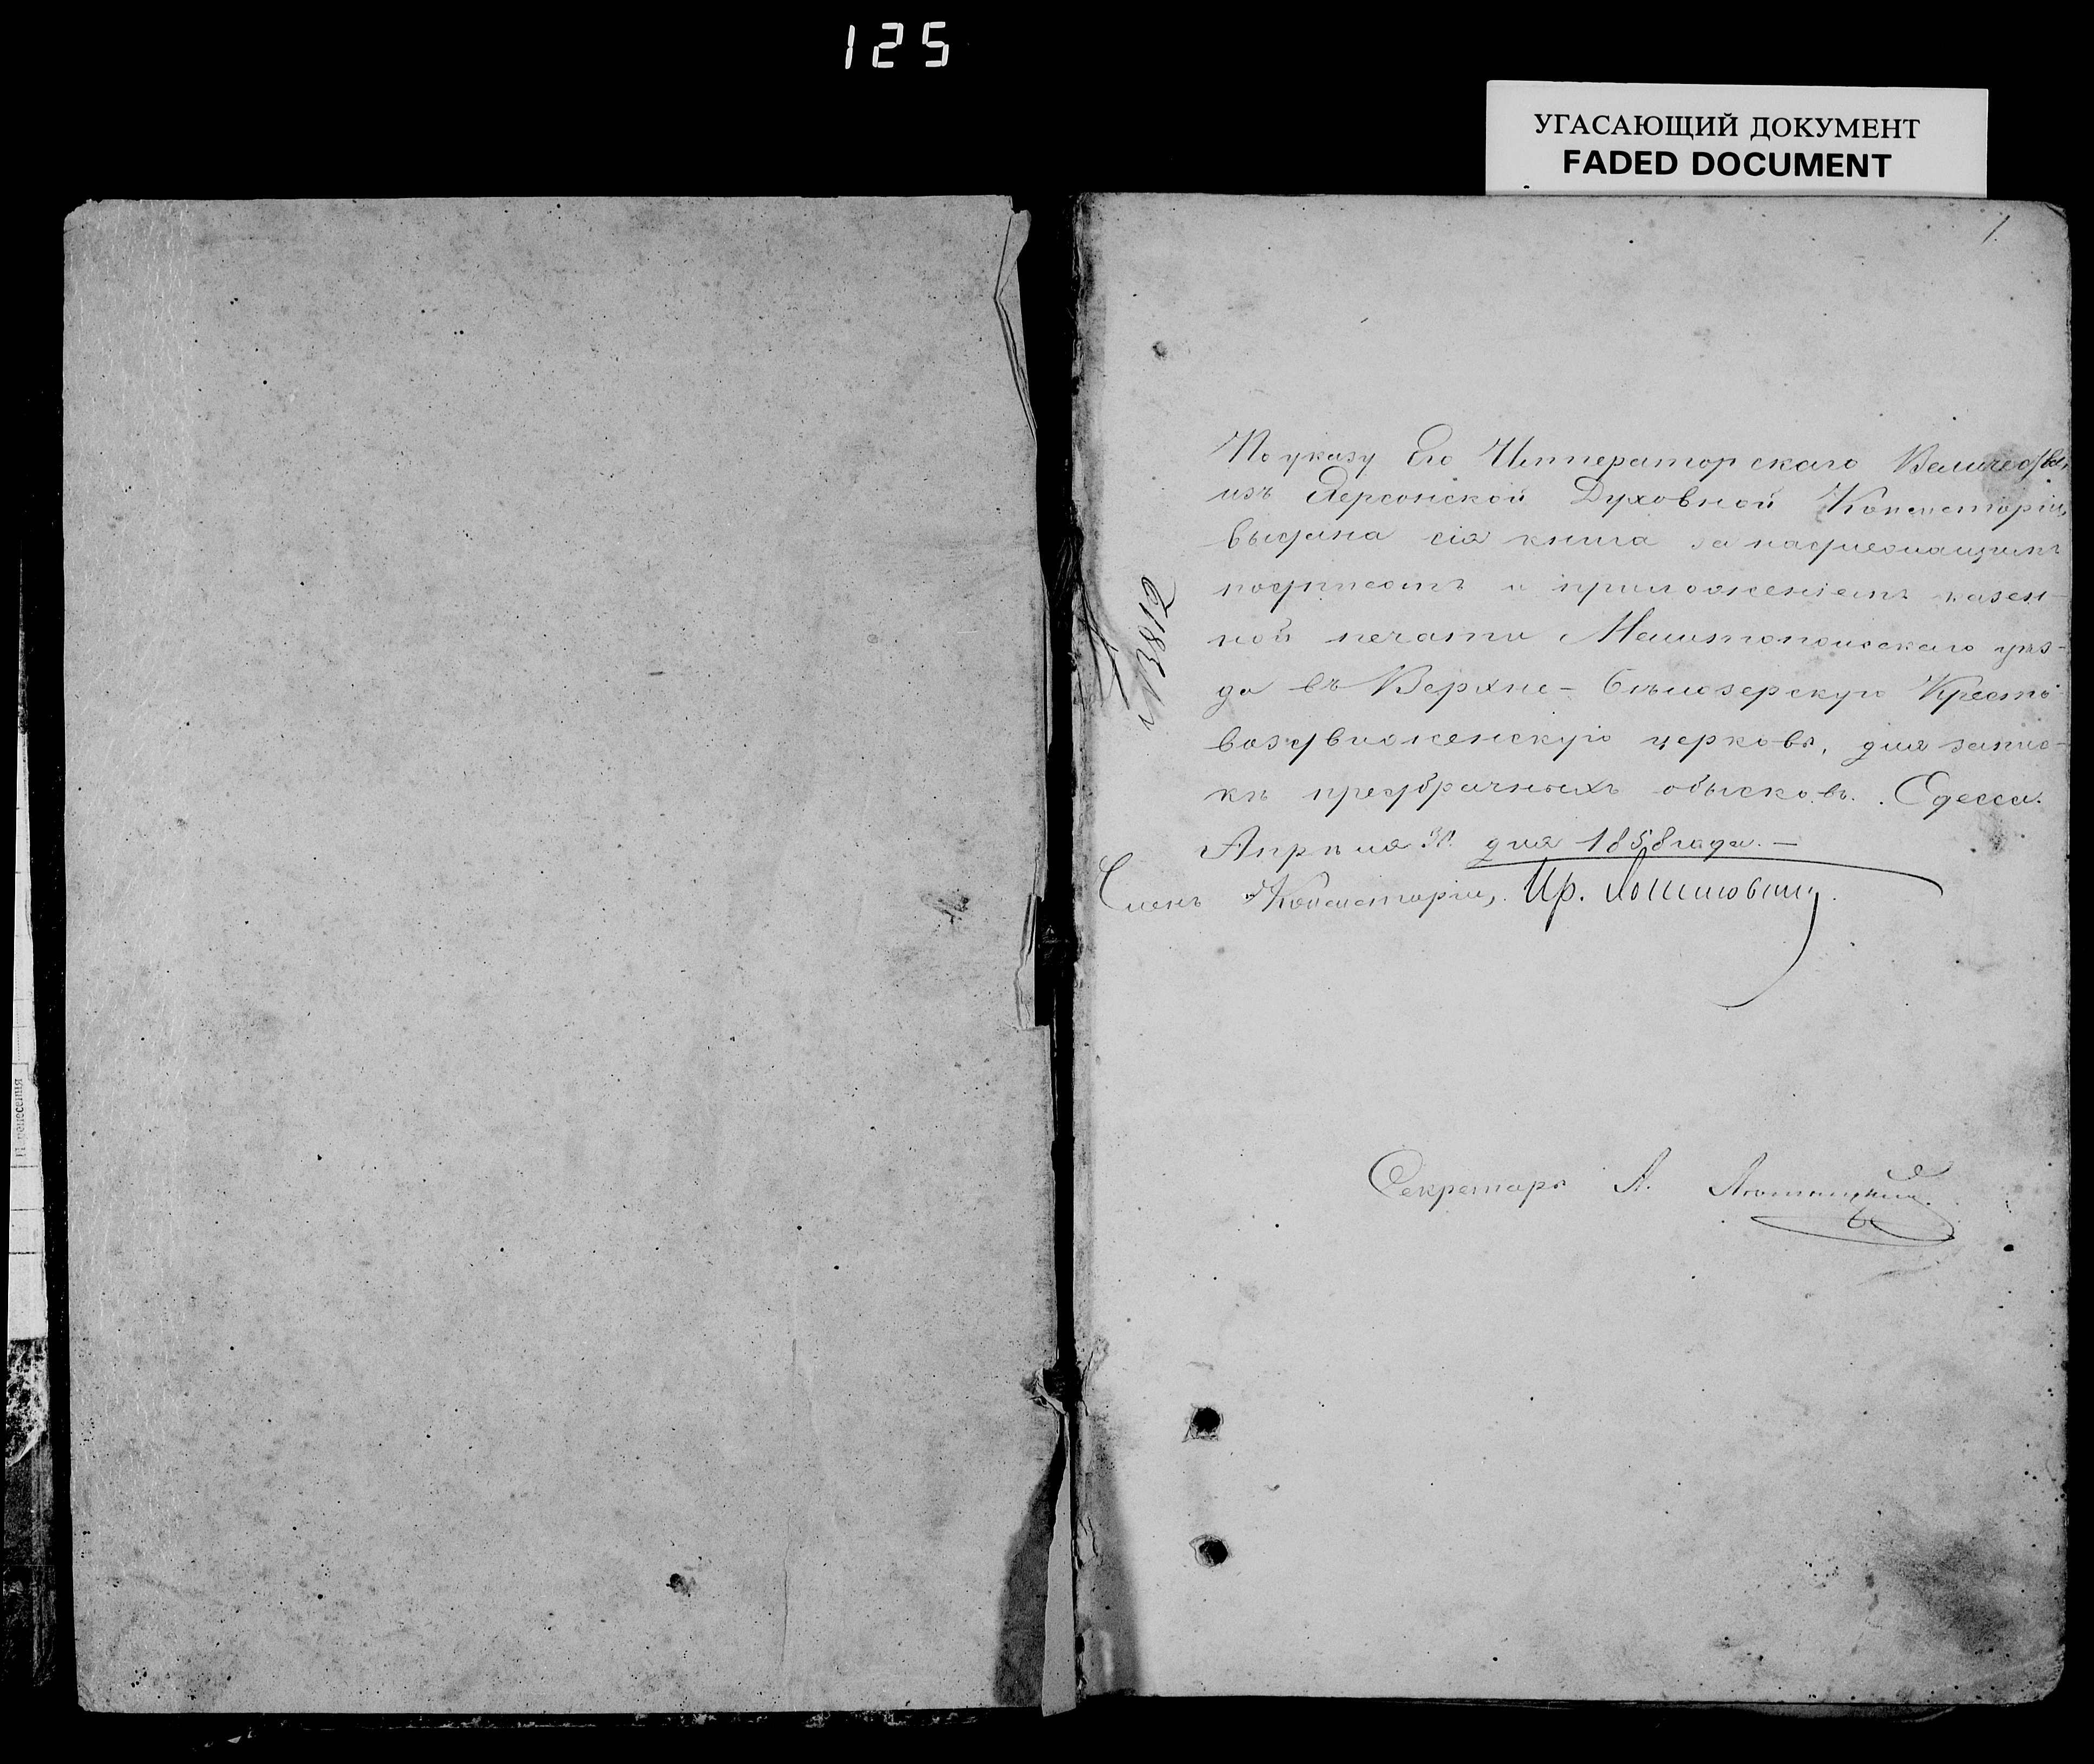 125
УГАСАЮЩИЙ ДОКУМЕНТ
FADED DOCUMENT
1.
По указу Его Императорскаго Величества,
изъ Херсонской Духовной Консисторіи,
выдана сія книга за надлежащимъ
подписомъ и приложеніемъ казен-
ной печати Мелитопольскаго уѣз-
да въ Верхне-Бѣлозерскую Кресто-
воздвиженскую церковь, для запис-
ки предбрачныхъ обысковъ. Одесса.
Апрѣля 30. дня 1858 года. —
Членъ Консисторіи, Пр.
№ 3812
Секретарь А.